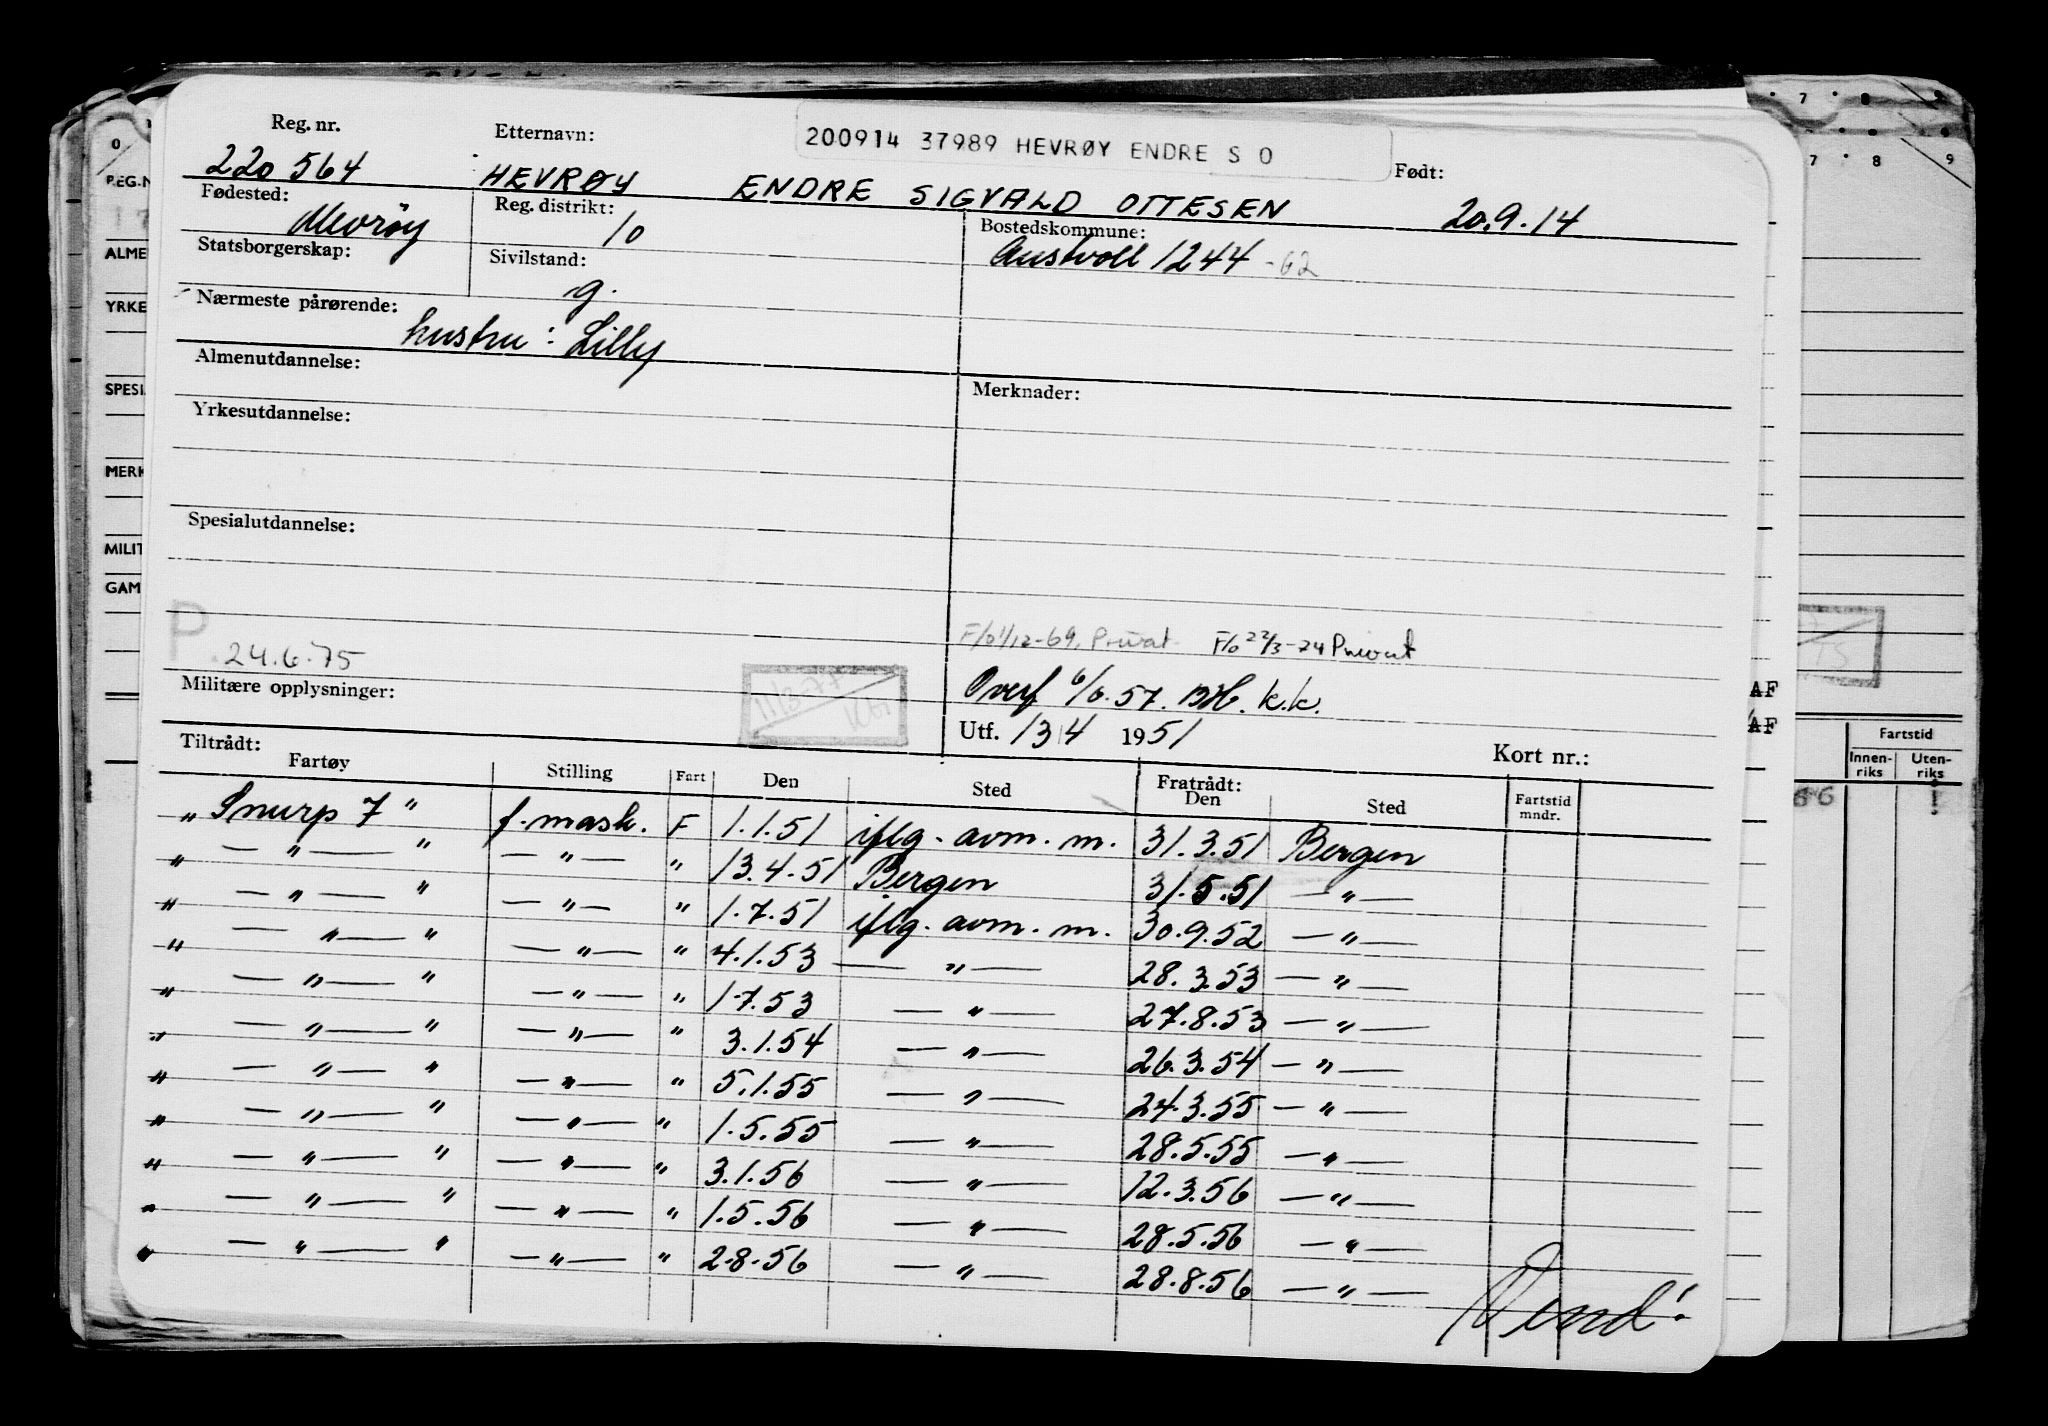 Reg. nr. Etternavn: 200914 37989 HEVRØY ENDRE S O Født:
220564 HEVRØY ENDRE SIGVALD OTTESEN 20.9.14
Fødested: Reg. distrikt: Bostedskommune:
10 Austvoll 1244 -62
Statsborgerskap: Sivilstand:
g.
Nærmeste pårørende:
hustru: Lilly
Almenutdannelse: Merknader:
Yrkesutdannelse:
Spesialutdannelse:
P. 24.6.75
F/o 1/12-69. Privat F/o 22/3-74 Privat
Militære opplysninger:
Overf 6/6.57. k.k.
Utf. 13/4 1951 Kort nr.:
Tiltrådt: Fratrådt:
Fartøy Stilling Fart Den Sted Den Sted Fartstid mndr.
"Snurp 7" f. mask. F 1.1.51 iflg. avm. m. 31.3.51 Bergen
" — " — " — " — " 13.4.51 Bergen 31.5.51 — " —
" — " — " — " — " 1.7.51 iflg. avm. m. 30.9.52 — " —
" — " — " — " — " 4.1.53 — " — 28.3.53 — " —
" — " — " — " — " 1.7.53 — " — 27.8.53 — " —
" — " — " — " — " 3.1.54 — " — 26.3.54 — " —
" — " — " — " — " 5.1.55 — " — 24.3.55 — " —
" — " — " — " — " 1.5.55 — " — 28.5.55 — " —
" — " — " — " — " 3.1.56 — " — 12.3.56 — " —
" — " — " — " — " 1.5.56 — " — 28.5.56 — " —
" — " — " — " — " 2.8.56 — " — 28.8.56 — " —
Vend!
0
REG.N
ALME
YRKE
SPESI
MERK
MILIT
GAM
7 8 9
7 8 9
AF
AF
Fartstid
Innen-riks Uten-riks
66